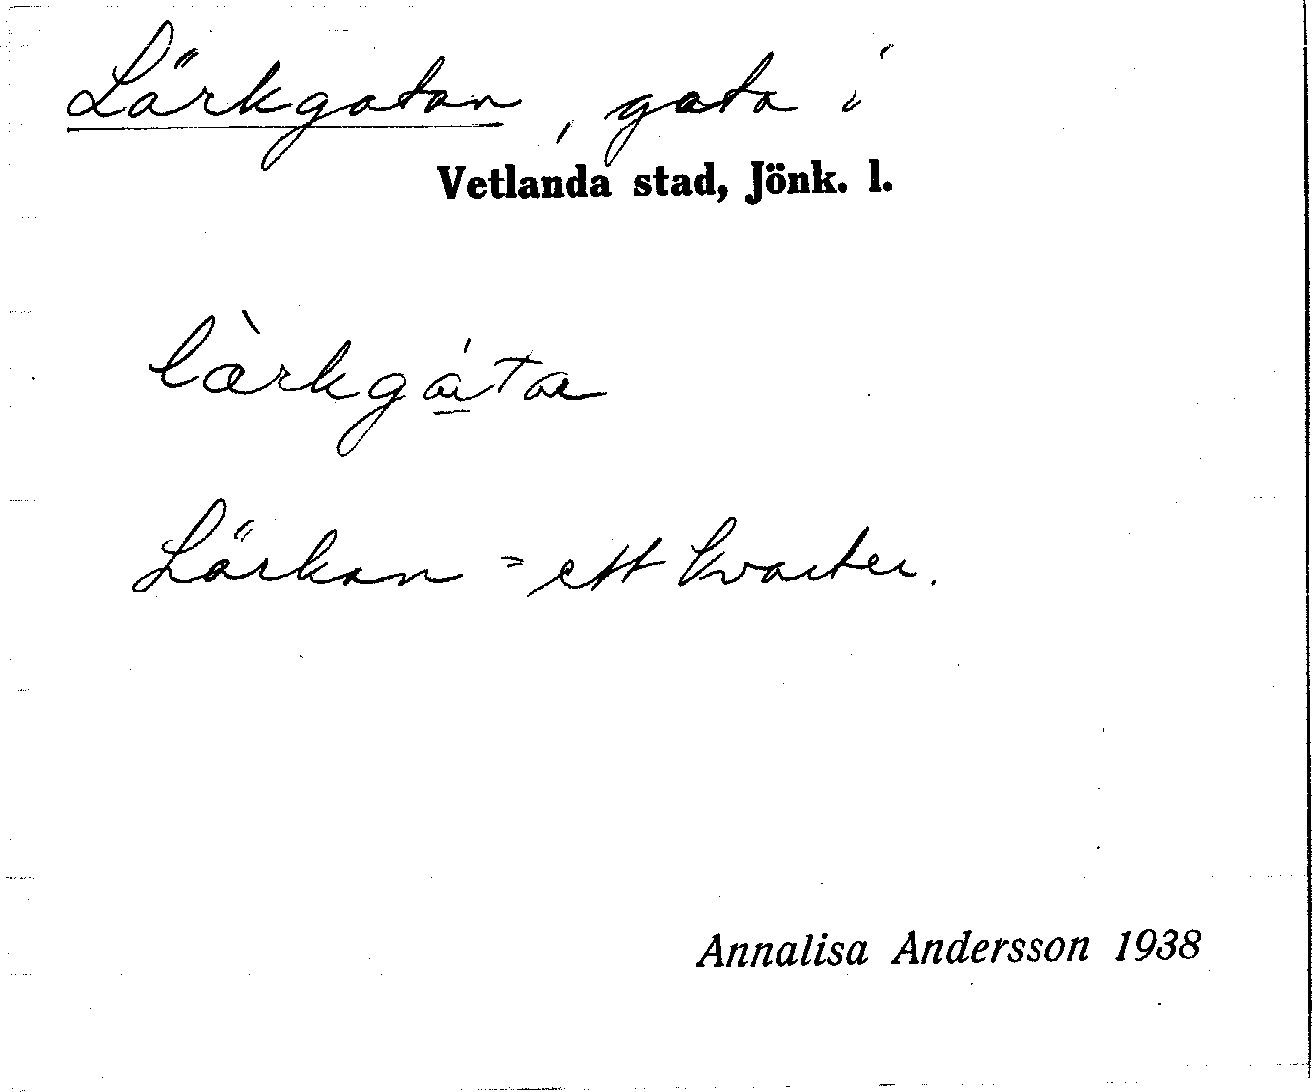 Lärkgatan, gata i
Vetlanda stad, Jönk. l.
lærkgáta
Lärkan = ett kvarter.
Annalisa Andersson 1938